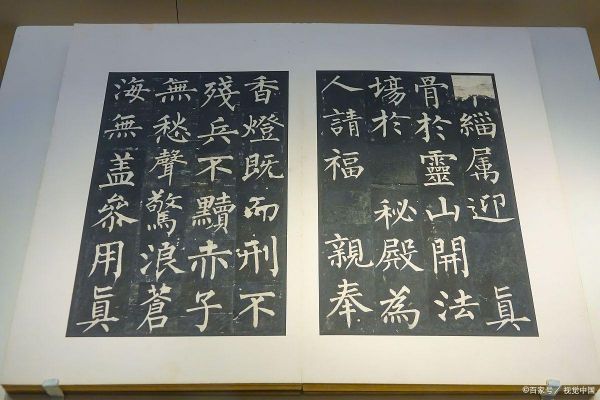 緇属迎 眞
骨於靈山開法
場於 秘殿為
人請福 親奉
香燈既而刑不
殘兵不黷赤子
無愁聲驚浪蒼
海無盖叅用眞
©百家号／视觉中国